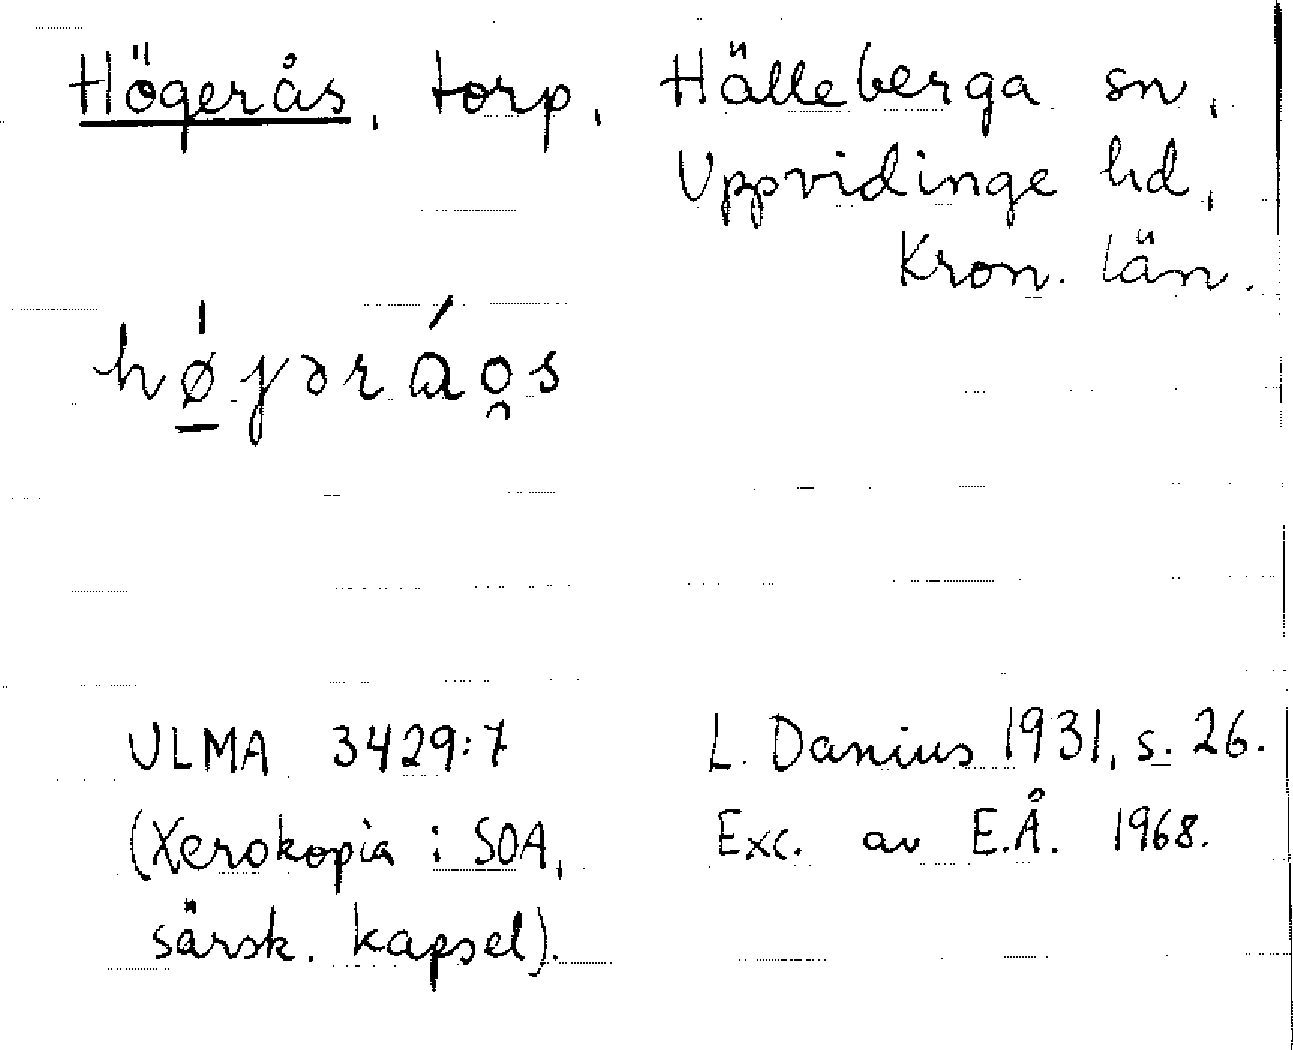 Högerås, torp, Hälleberga sn,
Uppvidinge hd,
Kron. län.
hǿ̱jəráo̯s
ULMA 3429:7 L. Danius 1931, s. 26.
(Xerokopia i SOA, Exc. av E.Å. 1968.
särsk. kapsel).